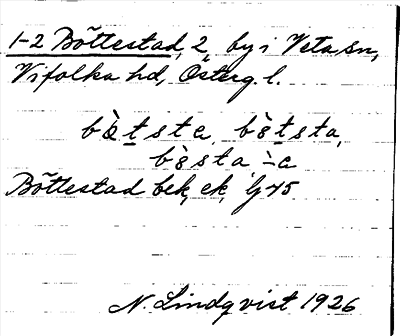 1-2 Böttestad, 2, by i Veta sn,
Vifolka hd, Österg. l.
bø̀tsta, bø̀tsta,
bø̀sta, -̀a
Böttestad bek, ek, lj 45
N. Lindqvist 1926